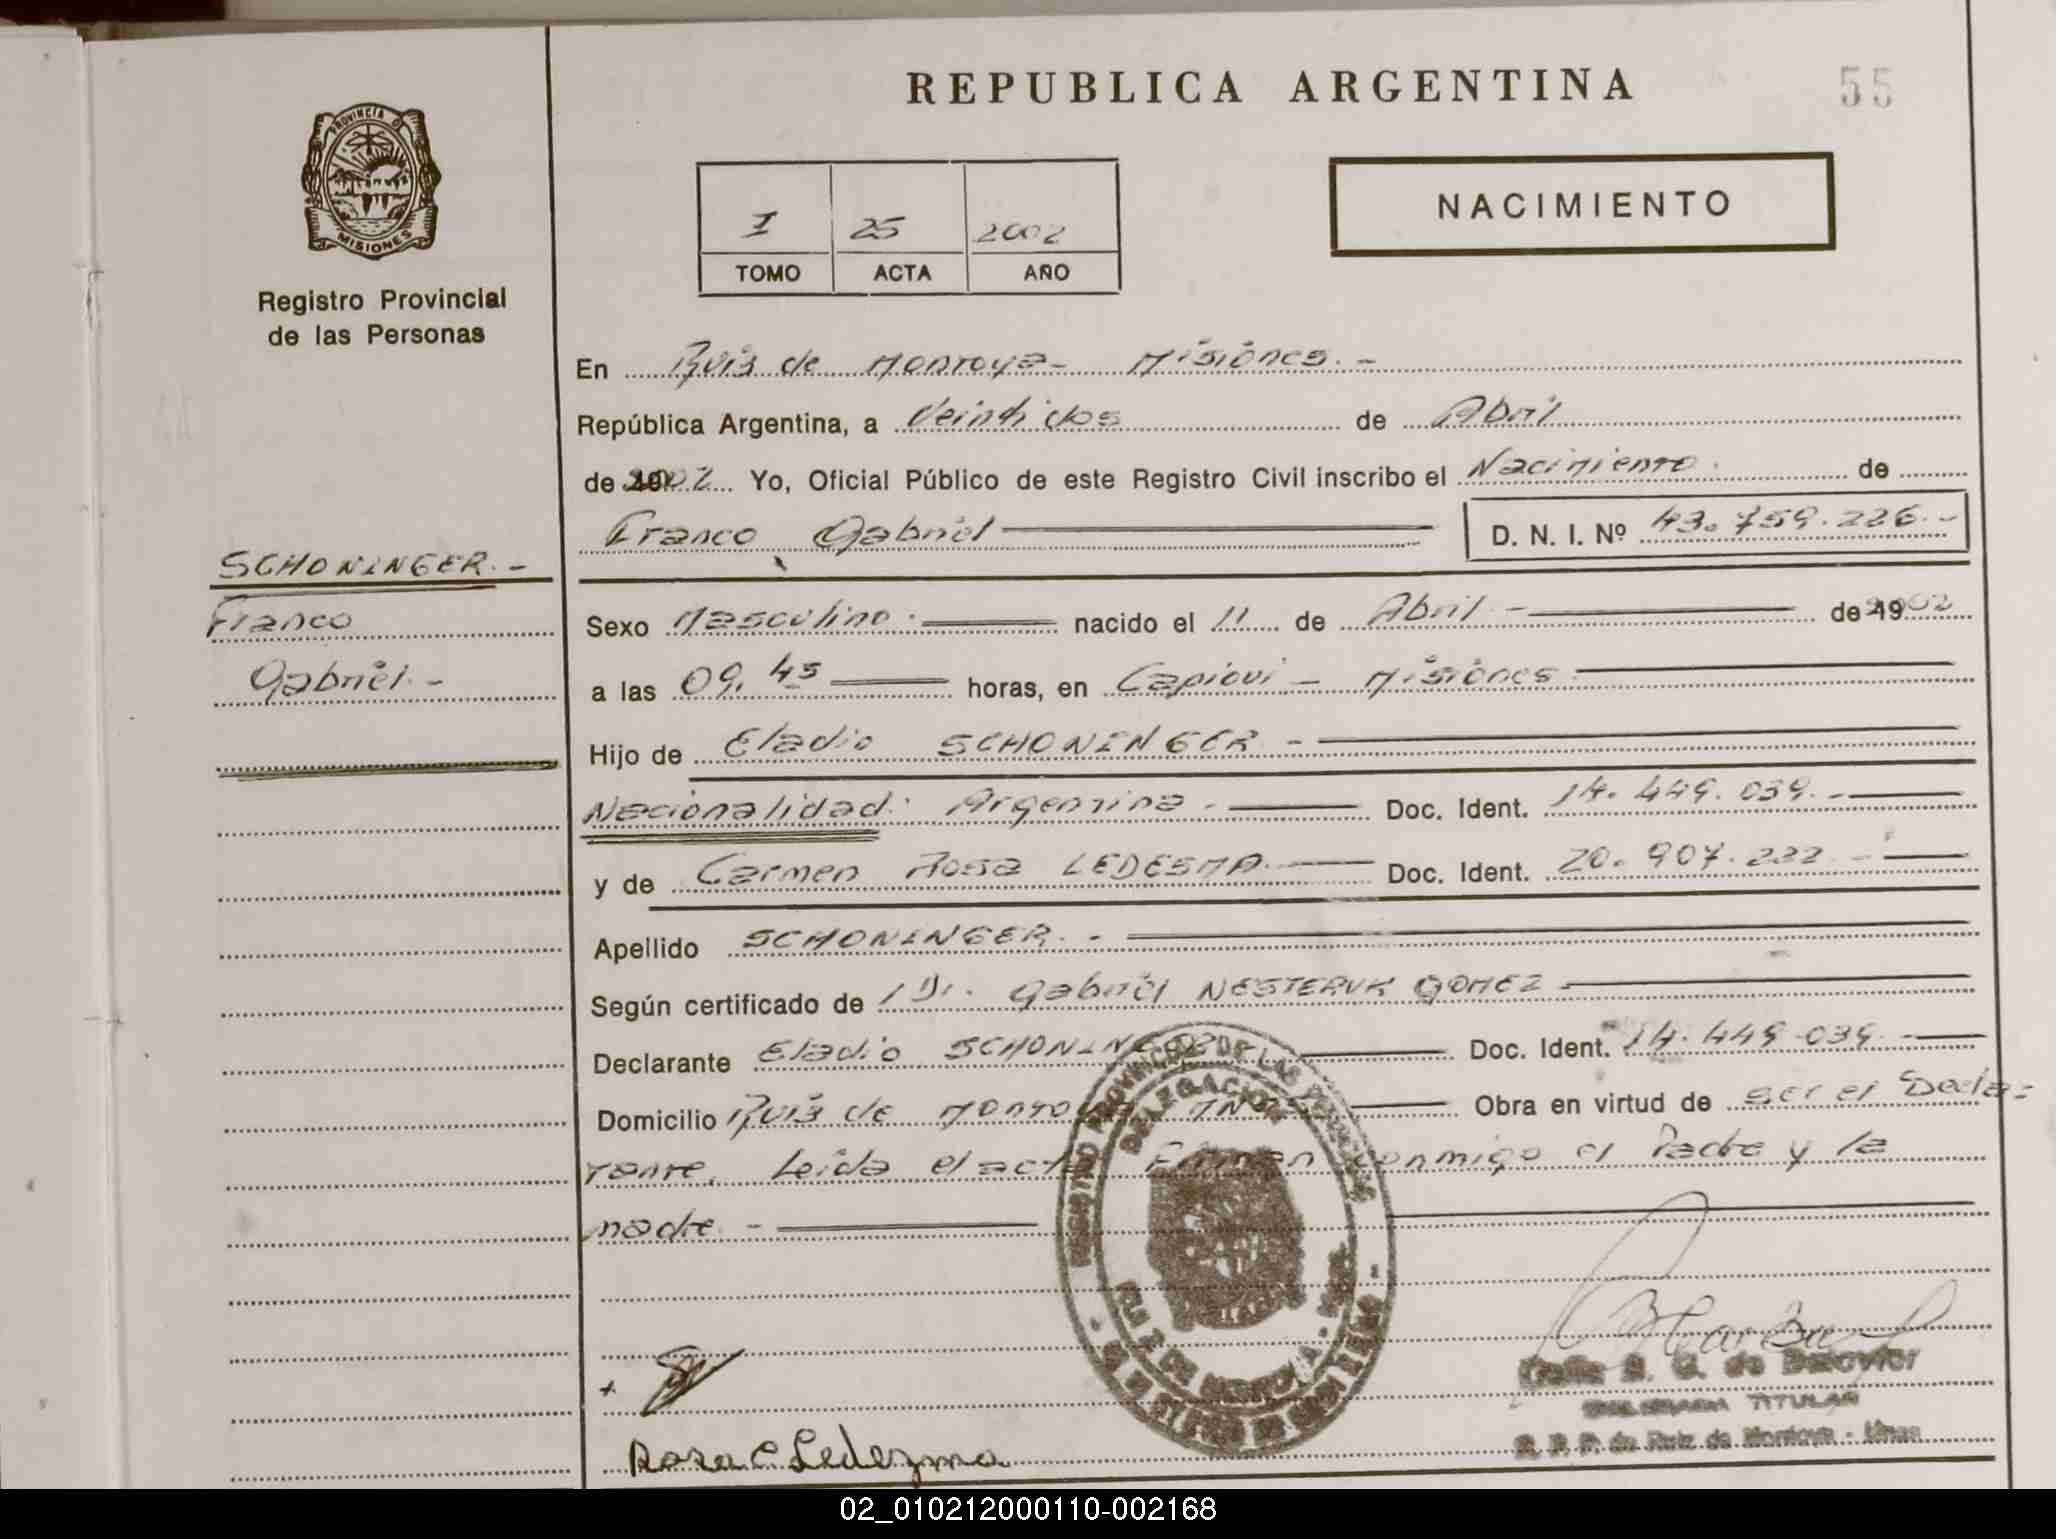 REPUBLICA ARGENTINA
55
PROVINCIA D
MISIONES
Registro Provincial
de las Personas
I 25 2002
TOMO ACTA AÑO
NACIMIENTO
En Ruiz de Montoya - Misiones. -
República Argentina, a Veintidos de Abril
de 2002 Yo, Oficial Público de este Registro Civil inscribo el Nacimiento. de
Franco Gabriel
D. N. I. Nº 43.759.226.-
SCHONINGER.-
Franco
Gabriel.-
Sexo Masculino. nacido el 11 de Abril.- de 2002
a las 09.45 horas, en Capiovi - Misiones
Hijo de Eladio SCHONINGER.-
Nacionalidad: Argentina.- Doc. Ident. 14.449.039.-
y de Carmen Rosa LEDESMA.- Doc. Ident. 20.907.222.-
Apellido SCHONINGER.-
Según certificado de Dr. Gabriel NESTERUK GOMEZ
Declarante Eladio SCHONINGER Doc. Ident. 14.449.039.-
Domicilio Ruiz de Montoya MNES Obra en virtud de ser el Decla=
rante. Leida el acta Firman conmigo el Padre y la
madre.-
REGISTRO PROVINCIAL DE LAS PERSONAS
DELEGACION
RUIZ DE MONTOYA
Rosa C Ledezma
TITULAR
R. P. P. de Ruiz de Montoya - Mnes
02_010212000110-002168